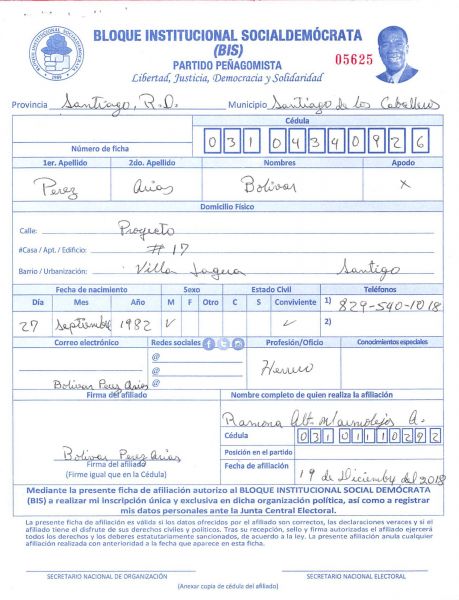 BLOQUE INSTITUCIONAL SOCIALDEMÓCRATA
(BIS)
PARTIDO PEÑAGOMISTA
Libertad, Justicia, Democracia y Solidaridad
05625
Provincia Santiago, R.D. Municipio Santiago de los Caballeros
Cédula
Número de ficha 031 0434092 6
1er. Apellido 2do. Apellido Nombres Apodo
Perez Arias Bolivar X
Domicilio Físico
Calle: Proyecto
#Casa / Apt. / Edificio: # 17
Barrio / Urbanización: Villa Santigo
Fecha de nacimiento Sexo Estado Civil Teléfonos
Día Mes Año M F Otro C S Conviviente 1) 829-540-1018
27 Septiembre 1982 ✓ ✓ 2)
Correo electrónico Redes sociales Profesión/Oficio Conocimientos especiales
@
@
Bolivar Perez Arias @ Herrero
Firma del afiliado Nombre completo de quien realiza la afiliación
Ramona Alt. Marmolejos A.
Cédula 03101110292
Posición en el partido
Bolivar Perez Arias
Firma del afiliado
(Firme igual que en la Cédula)
Fecha de afiliación 19 de Diciembre del 2018
Mediante la presente ficha de afiliación autorizo al BLOQUE INSTITUCIONAL SOCIAL DEMÓCRATA
(BIS) a realizar mi inscripción única y exclusiva en dicha organización política, así como a registrar
mis datos personales ante la Junta Central Electoral.
La presente ficha de afiliación es válida si los datos ofrecidos por el afiliado son correctos, las declaraciones veraces y si el
afiliado tiene el disfrute de sus derechos civiles y políticos. Tras su recepción, sello y firma autorizadas el afiliado ejercerá
todos los derechos y los deberes estatutariamente sancionados, de acuerdo a la ley. La presente afiliación anula cualquier
afiliación realizada con anterioridad a la fecha que aparece en esta ficha.
SECRETARIO NACIONAL DE ORGANIZACIÓN SECRETARIO NACIONAL ELECTORAL
(Anexar copia de cédula del afiliado)